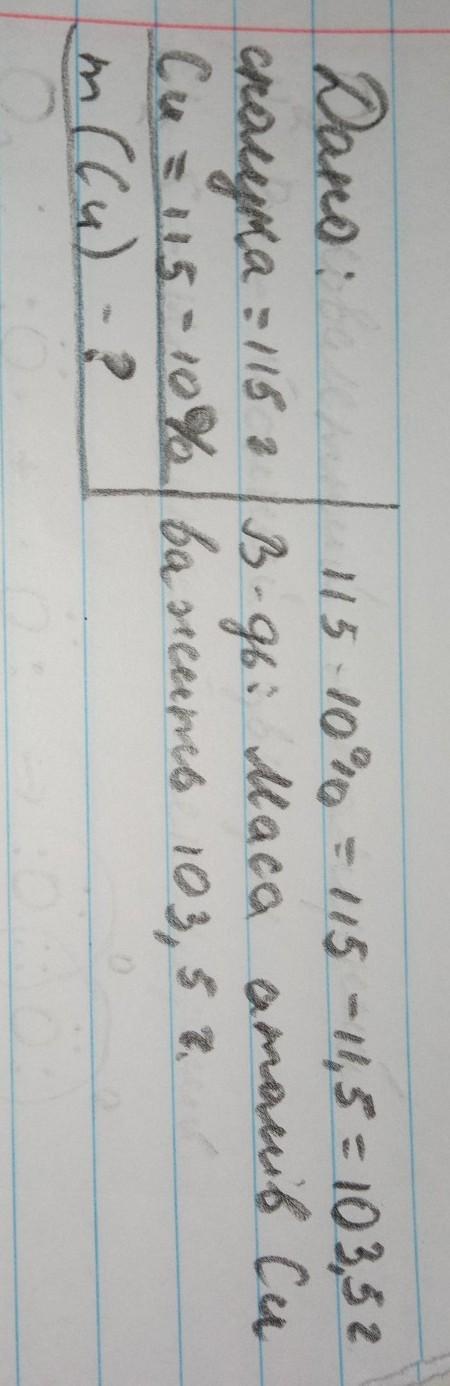 Дано:
сполука = 115 г
Cu = 115 - 10%
m(Cu) - ?
115 - 10% = 115 - 11,5 = 103,5 г
В-дь: Маса атомів Cu
важить 103,5 г.